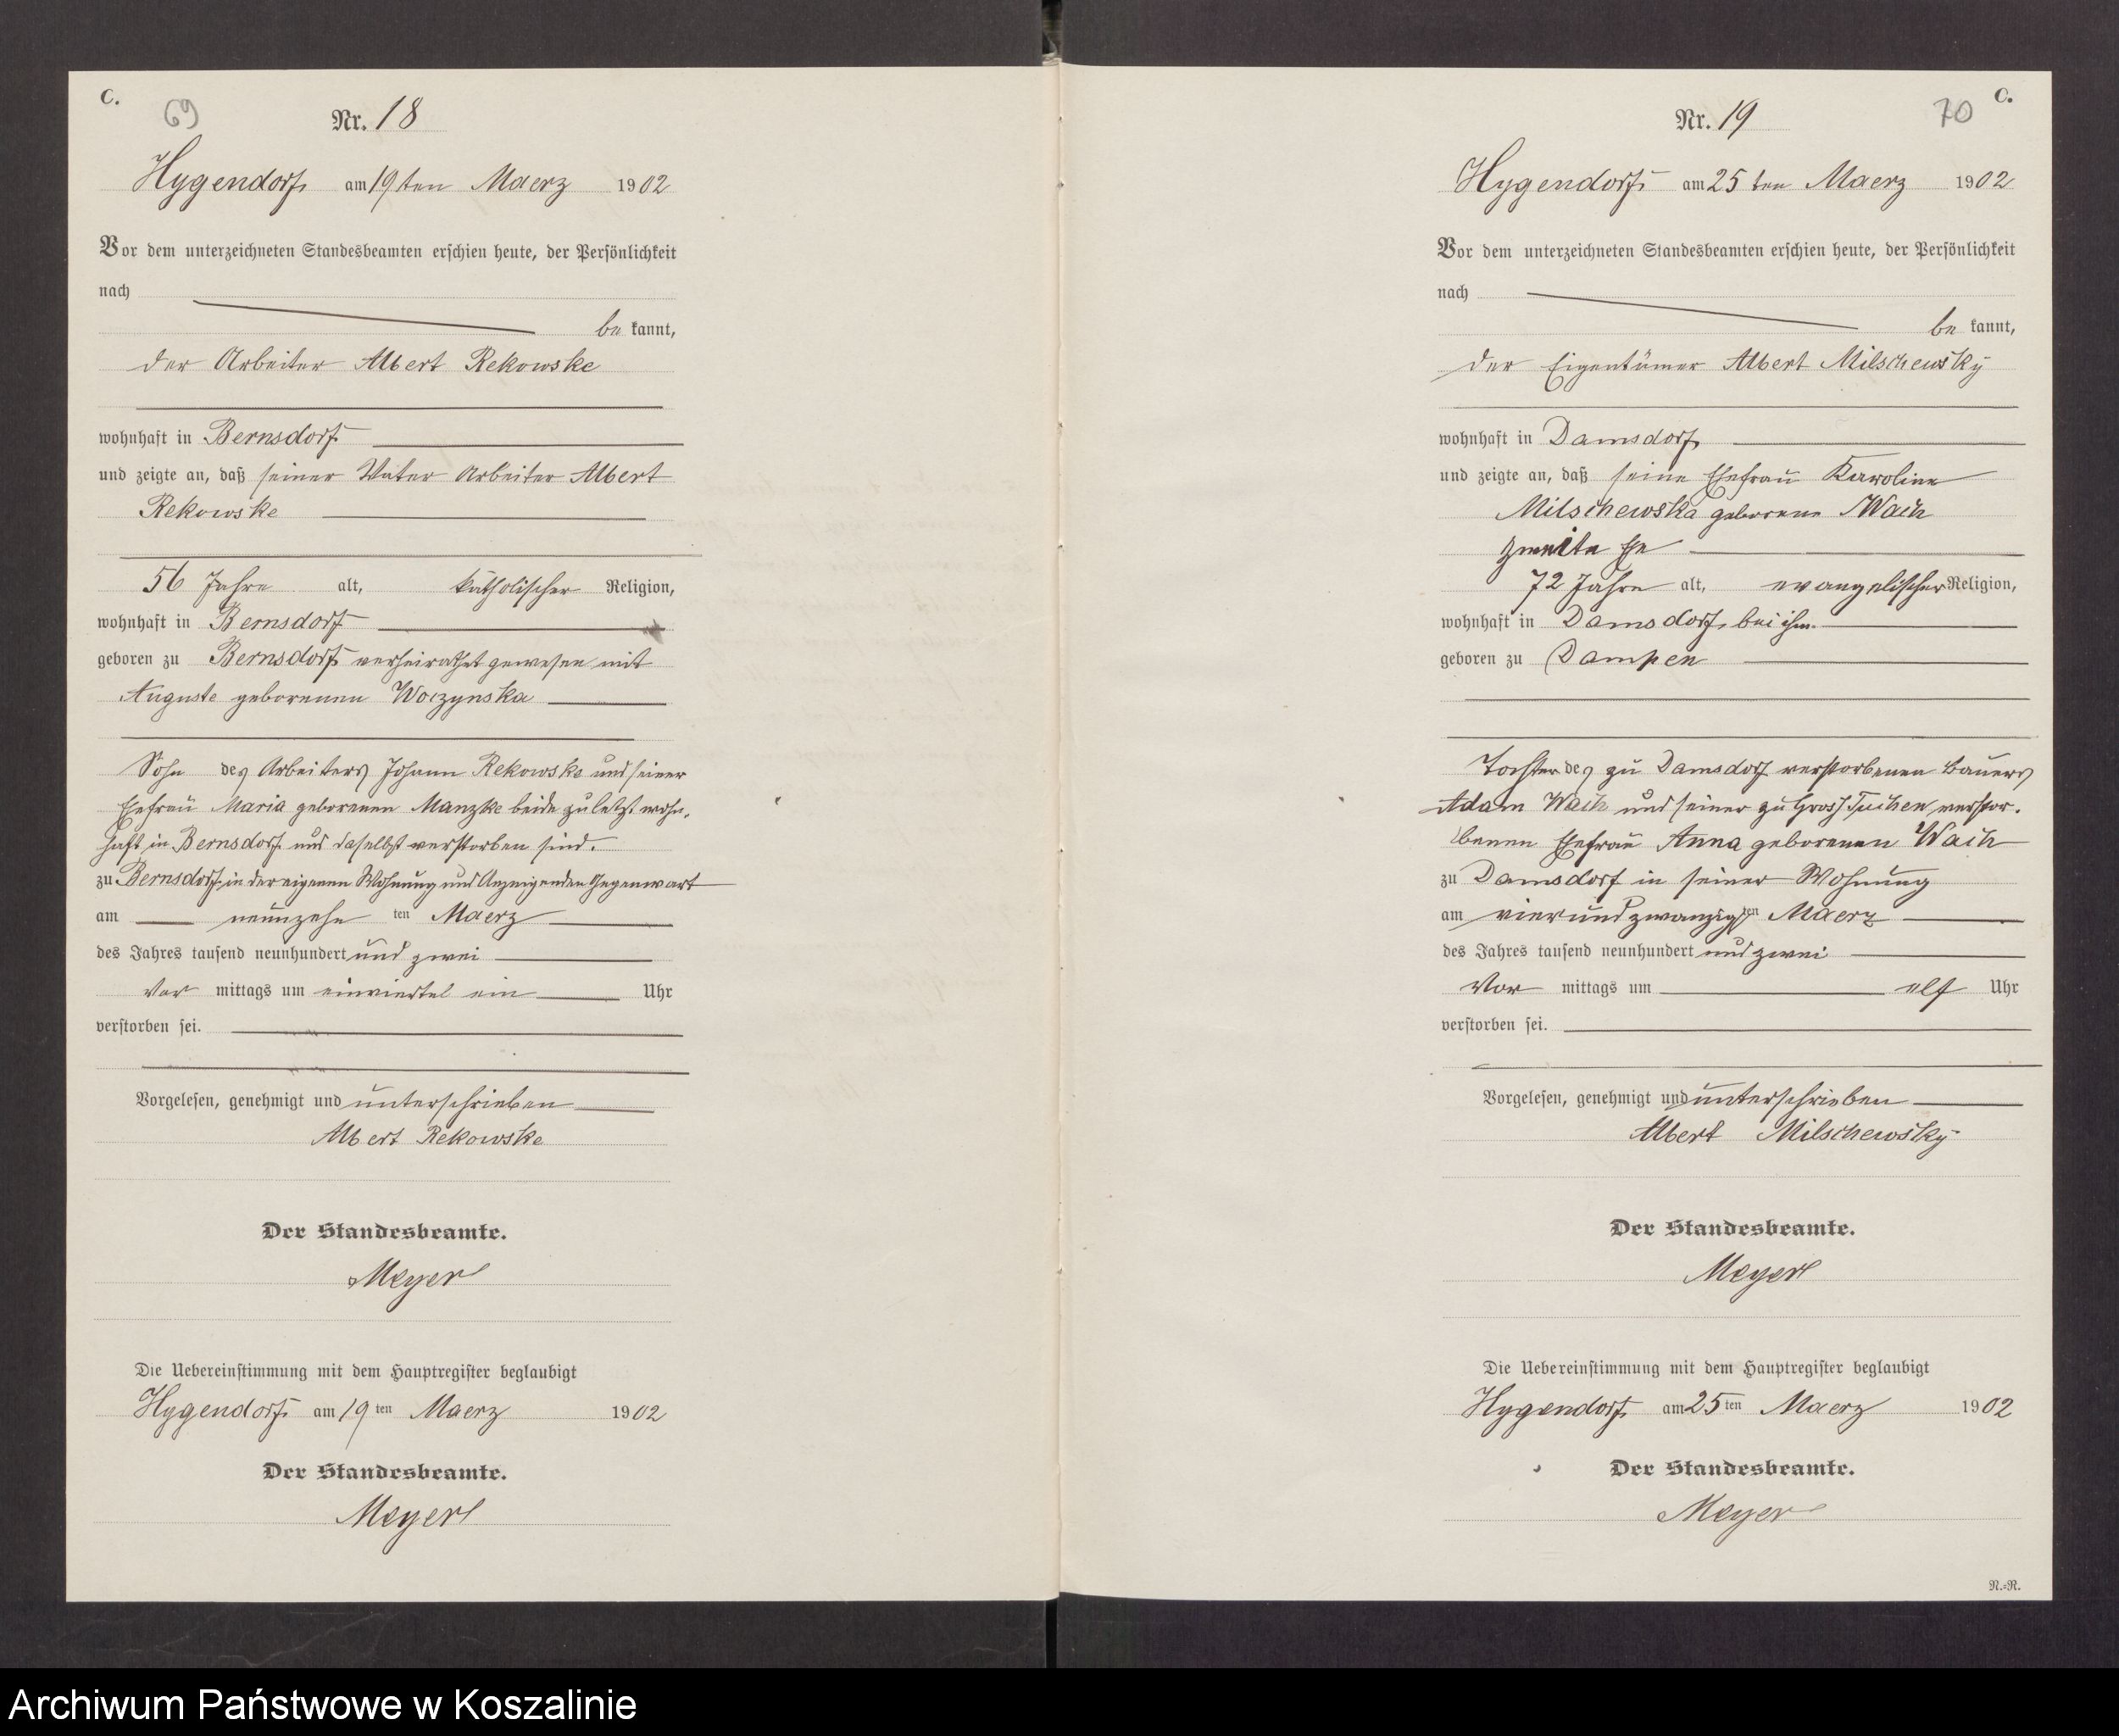 C.
69
Nr. 18
Hygendorf am 19ten Maerz 1902
Vor dem unterzeichneten Standesbeamten erschien heute, der Persönlichkeit
nach
be kannt,
der Arbeiter Albert Rekowske
wohnhaft in Bernsdorf
und zeigte an, daß seiner Vater Arbeiter Albert
Rekowske
56 Jahre alt, katholischer Religion,
wohnhaft in Bernsdorf
geboren zu Bernsdorf verheirathet gewesen mit
Auguste geborenen Woczynska
Sohn des Arbeiters Johann Rekowske und seiner
Ehefrau Maria geborenen Manzke beide zuletzt wohn-
haft in Bernsdorf und daselbst verstorben sind.
zu Bernsdorf in der eigenen Wohnung und Anzeigenden Gegenwart
am neunzehn ten Maerz
des Jahres tausend neunhundert und zwei
Vor mittags um einviertel ein Uhr
verstorben sei.
Vorgelesen, genehmigt und unterschrieben
Albert Rekowske
Der Standesbeamte.
Meyer
Die Uebereinstimmung mit dem Hauptregister beglaubigt
Hygendorf am 19 ten Maerz 1902
Der Standesbeamte.
Meyer
C.
70
Nr. 19
Hygendorf am 25 ten Maerz 1902
Vor dem unterzeichneten Standesbeamten erschien heute, der Persönlichkeit
nach
be kannt,
der Eigentümer Albert Milschewsky
wohnhaft in Damsdorf
und zeigte an, daß seine Ehefrau Karoline
Milschewska geborene Waih
zweite Ehe
72 Jahre alt, evangelischer Religion,
wohnhaft in Damsdorf, bei ihm
geboren zu Dampen
Tochter des zu Damsdorf verstorbenen Bauers
Adam Waih und seiner zu Gross Tuchen verstor-
benen Ehefrau Anna geborenen Waih
zu Damsdorf in seiner Wohnung
am vierundzwanzig ten Maerz
des Jahres tausend neunhundert und zwei
Vor mittags um elf Uhr
verstorben sei.
Vorgelesen, genehmigt und unterschrieben
Albert Milschewsky
Der Standesbeamte.
Meyer
Die Uebereinstimmung mit dem Hauptregister beglaubigt
Hygendorf am 25 ten Maerz 1902
Der Standesbeamte.
Meyer
N.=R.
Archiwum Państwowe w Koszalinie